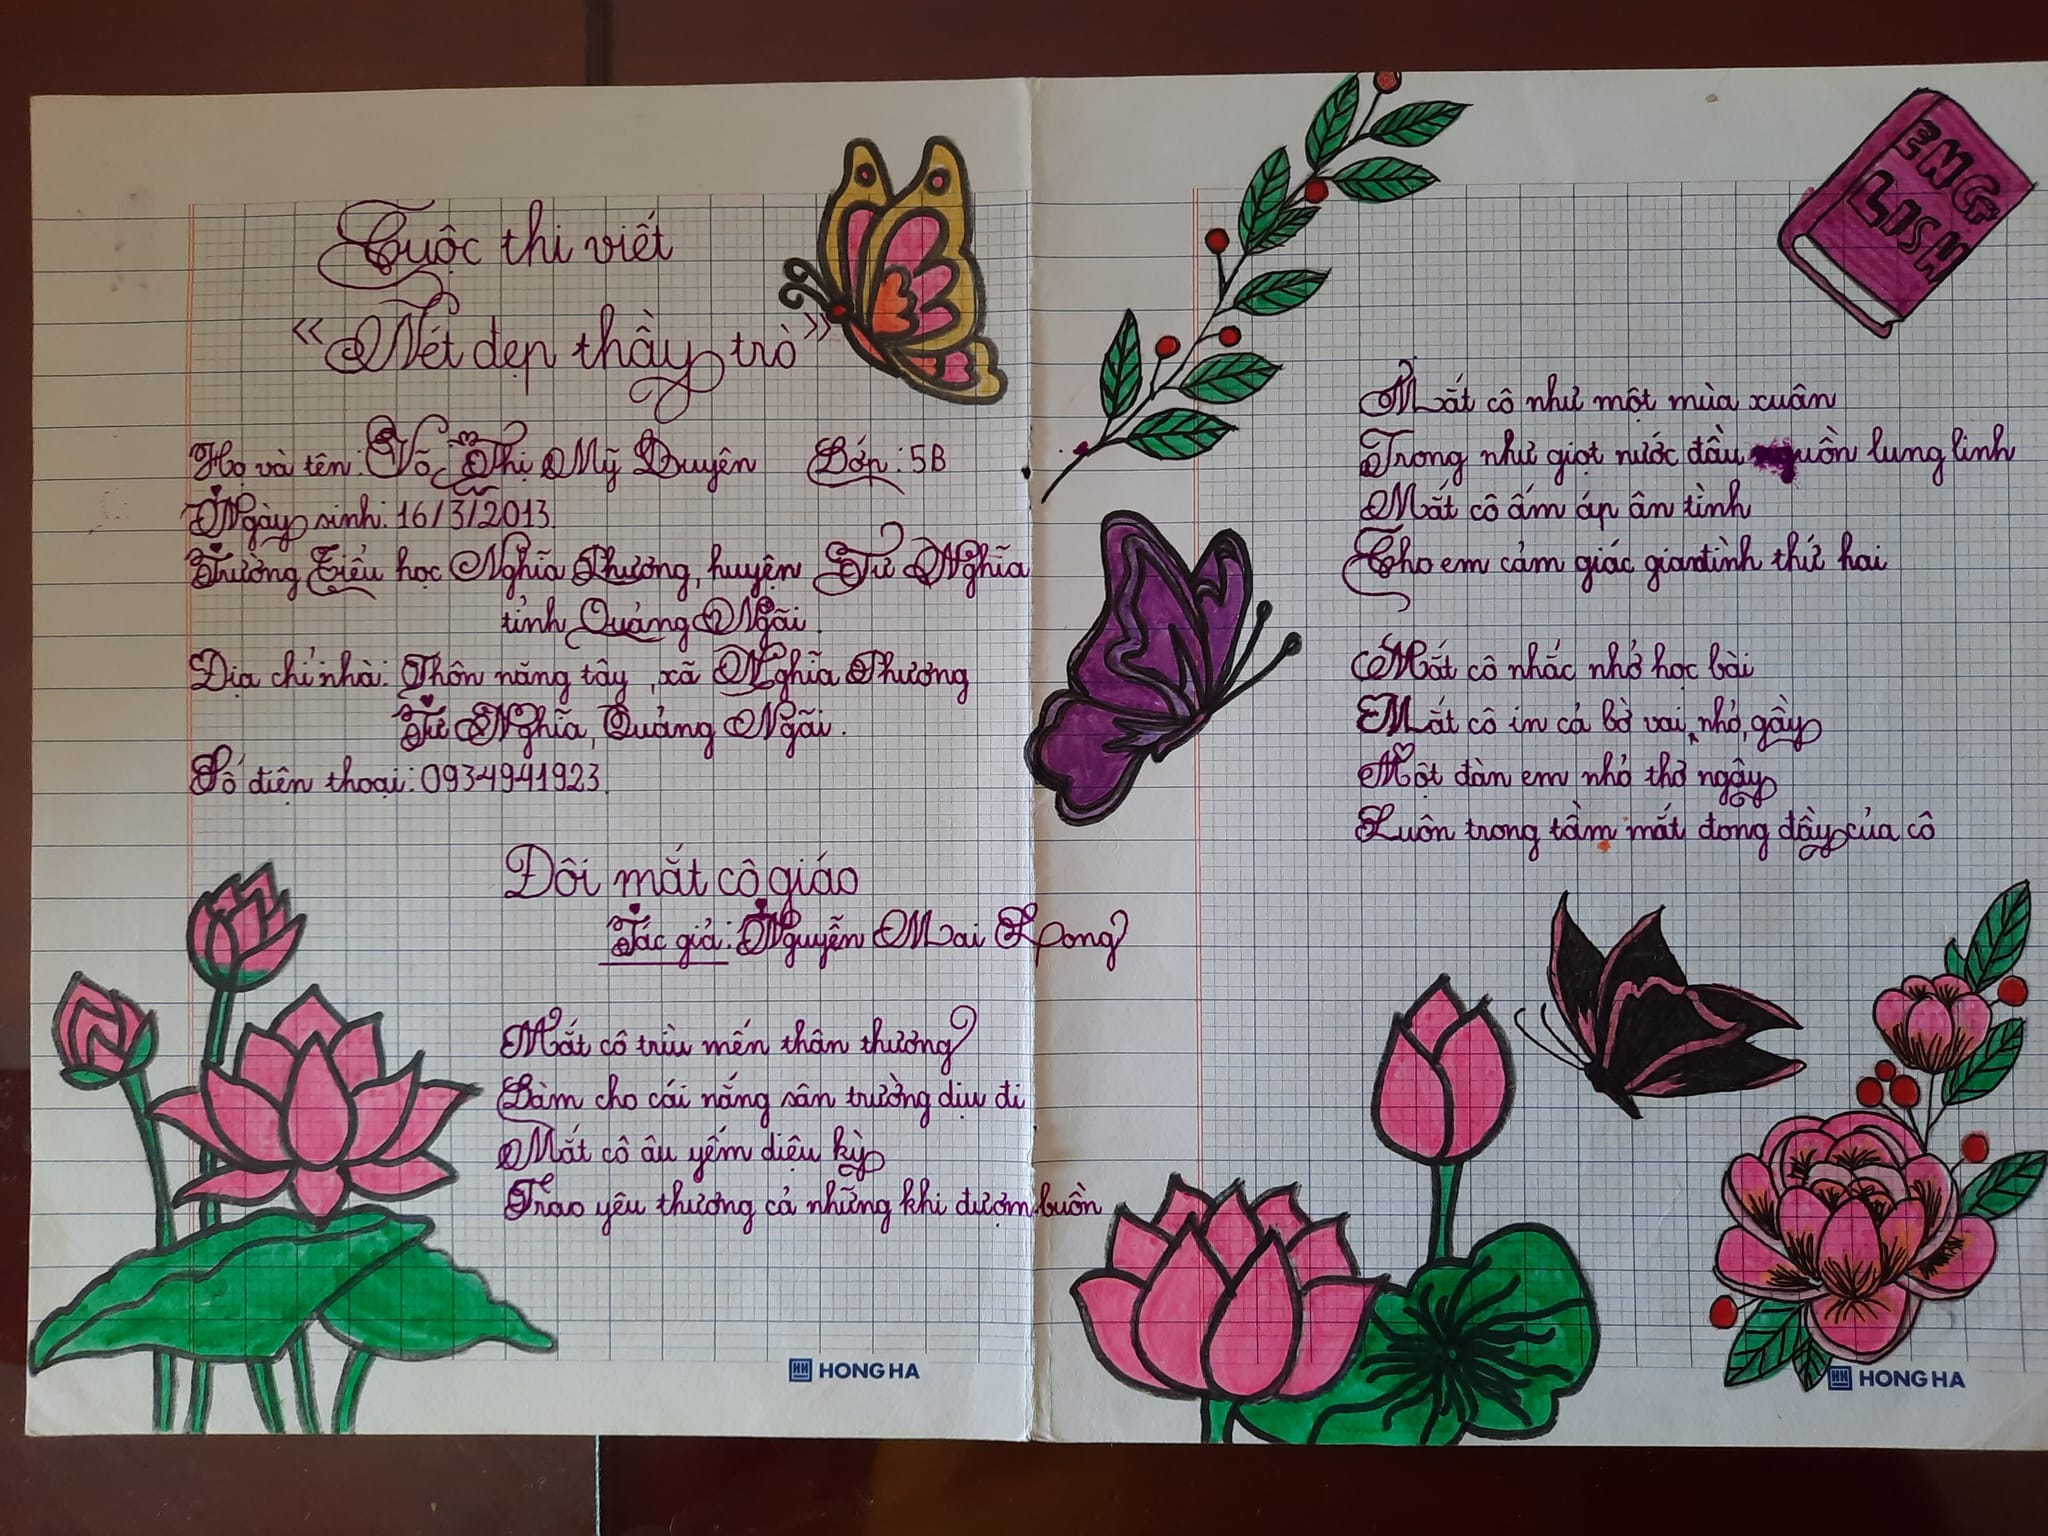 Cuộc thi viết
"Nét đẹp thầy trò"
Họ và tên: Võ Thị Mỹ Duyên Lớp: 5B
Ngày sinh: 16/3/2013
Trường Tiểu học Nghĩa Thương, huyện Tư Nghĩa
tỉnh Quảng Ngãi.
Địa chỉ nhà: Thôn năng tây, xã Nghĩa Thương
Tư Nghĩa, Quảng Ngãi.
Số điện thoại: 0934941923.
Đôi mắt cô giáo
Tác giả: Nguyễn Mai Long
Mắt cô trìu mến thân thương
Làm cho cái nắng sân trường dịu đi
Mắt cô âu yếm diệu kỳ
Trao yêu thương cả những khi đượm buồn
HONG HA
ENGLISH
Mắt cô như một mùa xuân
Trong như giọt nước đầu nguồn lung linh
Mắt cô ấm áp ân tình
Cho em cảm giác gia đình thứ hai
Mắt cô nhắc nhở học bài
Mắt cô in cả bờ vai nhỏ, gầy
Một đàn em nhỏ thơ ngây
Luôn trong tầm mắt đong đầy của cô
HONG HA